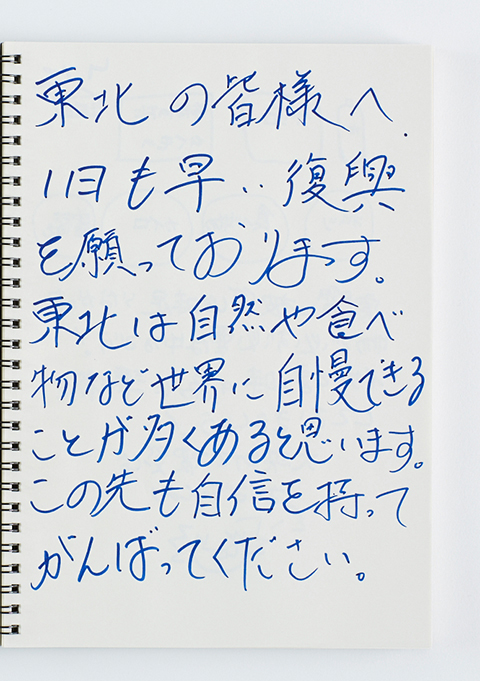 東北の皆様へ.
1日も早い復興
を願っております。
東北は自然や食べ
物など世界に自慢できる
ことが多くあると思います。
この先も自信を持って
がんばってください。